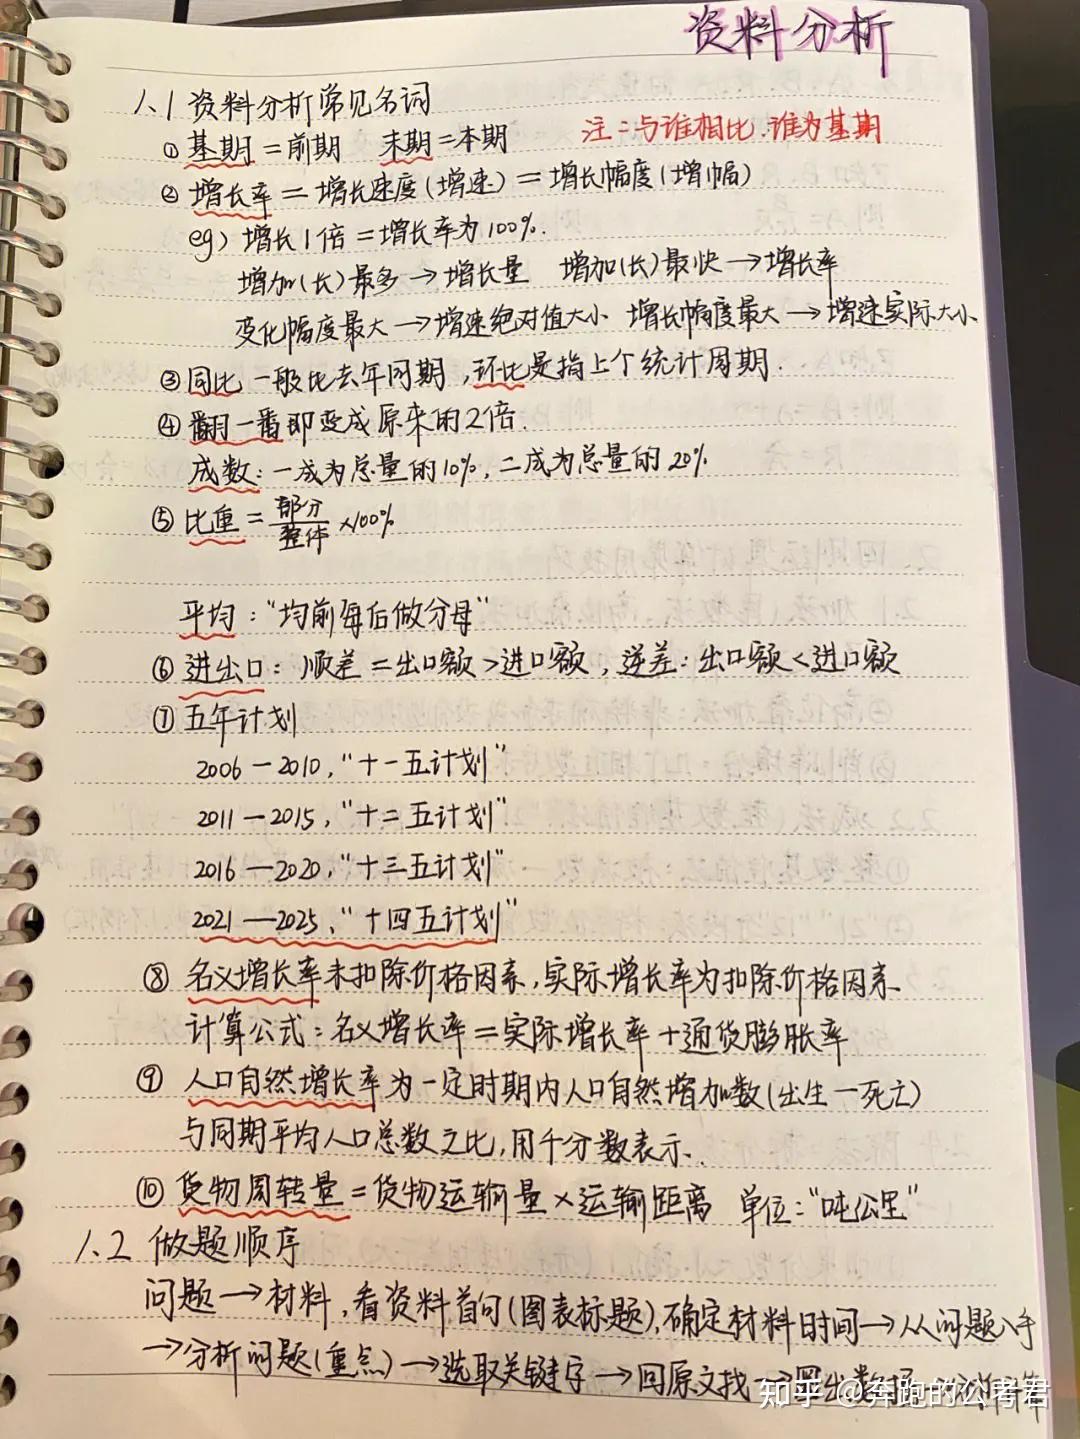 资料分析
1.1 资料分析常见名词
① 基期=前期 末期=本期 注:与谁相比.谁为基期
② 增长率=增长速度(增速)=增长幅度(增幅)
eg) 增长1倍=增长率为100%.
增加(长)最多→增长量 增加(长)最快→增长率
变化幅度最大→增速绝对值大小 增长幅度最大→增速实际大小
③ 同比一般比去年同期,环比是指上个统计周期.
④ 翻一番即变成原来的2倍.
成数:一成为总量的10%,二成为总量的20%
⑤ 比重=部分/整体×100%
平均:“均前每后做分母”
⑥ 进出口:顺差=出口额>进口额,逆差:出口额<进口额
⑦ 五年计划
2006—2010,“十一五计划”
2011—2015,“十二五计划”
2016—2020,“十三五计划”
2021—2025,“十四五计划”
⑧ 名义增长率未扣除价格因素,实际增长率为扣除价格因素.
计算公式:名义增长率=实际增长率+通货膨胀率
⑨ 人口自然增长率为一定时期内人口自然增加数(出生—死亡)
与同期平均人口总数之比,用千分数表示.
⑩ 货物周转量=货物运输量×运输距离 单位:“吨公里”
1.2 做题顺序
问题→材料,看资料首句(图表标题),确定材料时间→从问题入手
→分析问题(重点)→选取关键字→回原文找→圈出数据
知乎 @奔跑的公考君